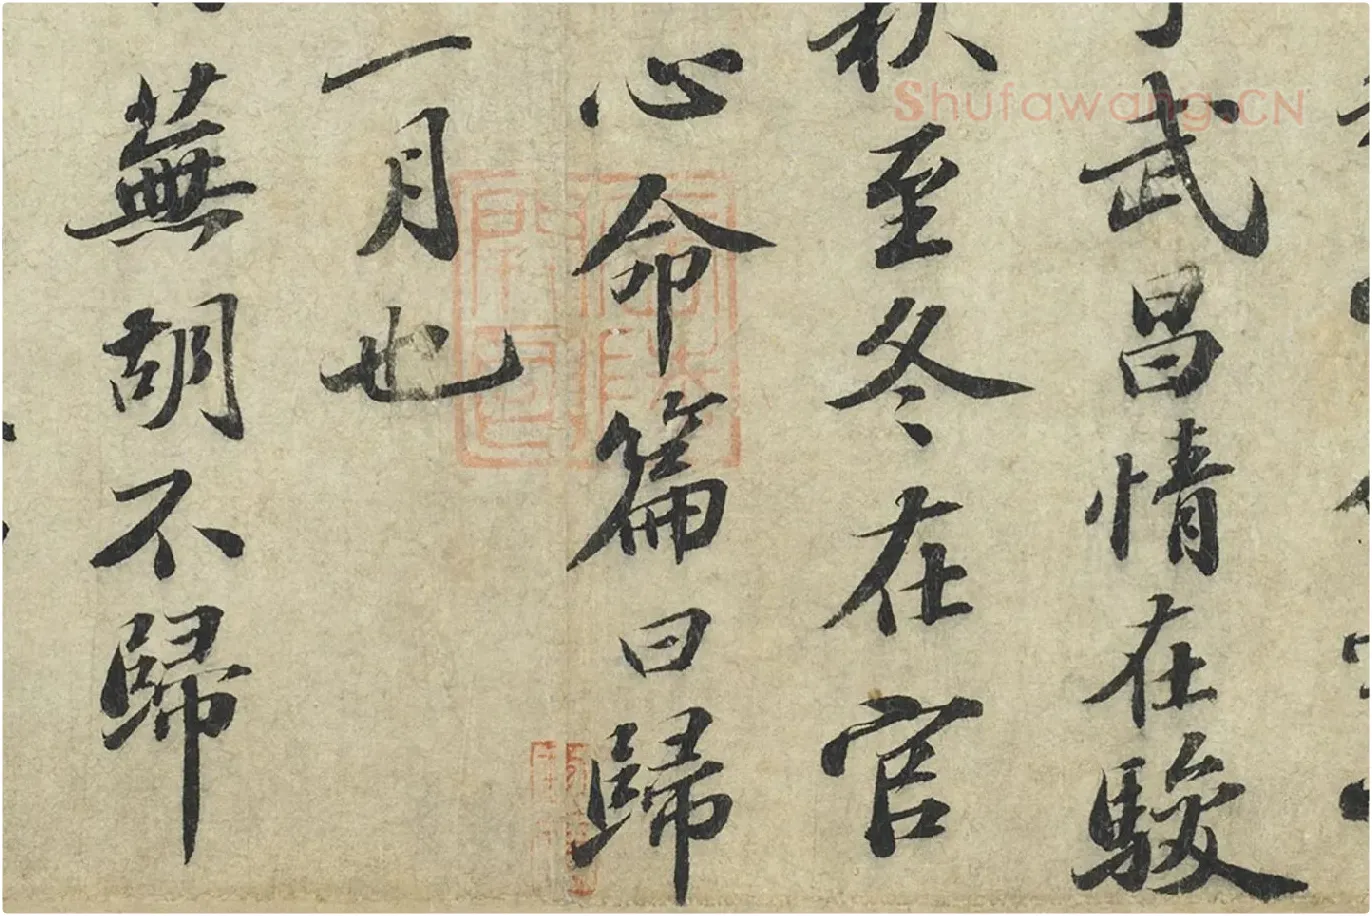 武昌情在駿
秋至冬在官
心命篇曰歸
一月也
蕪胡不歸
Shufawang.CN